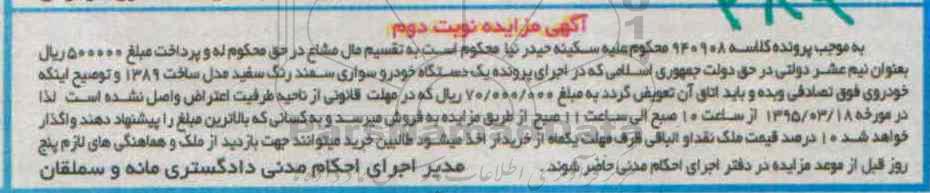 آگهی مزایده نوبت دوم
به موجب پرونده کلاسه ۹۴۰۹۰۸ محکوم علیه سکینه حیدر نیا محکوم است به تقسیم مال مشاع در حق محکوم له و پرداخت مبلغ ۵۰۰۰۰۰ ریال
بعنوان نیم عشر دولتی در حق دولت جمهوری اسلامی که در اجرای پرونده یک دستگاه خودرو سواری سمند رنگ سفید مدل ساخت ۱۳۸۹ و توضیح اینکه
خودروی فوق تصادفی وبده و باید اتاق آن تعویض گردد به مبلغ ۷۰/۰۰۰/۸۰۰ ریال که در مهلت قانونی از ناحیه طرفیت اعتراض واصل نشده است لذا
در مورخه ۱۳۹۵/۰۳/۱۸ از ساعت ۱۰ صبح الی ساعت ۱۱ صبح از طریق مزایده به فروش میرسد و به کسانی که بالاترین مبلغ را پیشنهاد دهند واگذار
خواهد شد ۱۰ درصد قیمت ملک نقد او الباقی ظرف مهلت یکماه از خریدار اخذ میشود طالبین خرید میتوانند جهت بازدید از ملک و هماهنگی های لازم پنج
روز قبل از موعد مزایده در دفتر اجرای احکام مدنی حاضر شوند. مدیر اجرای احکام مدنی دادگستری مانه و سملقان